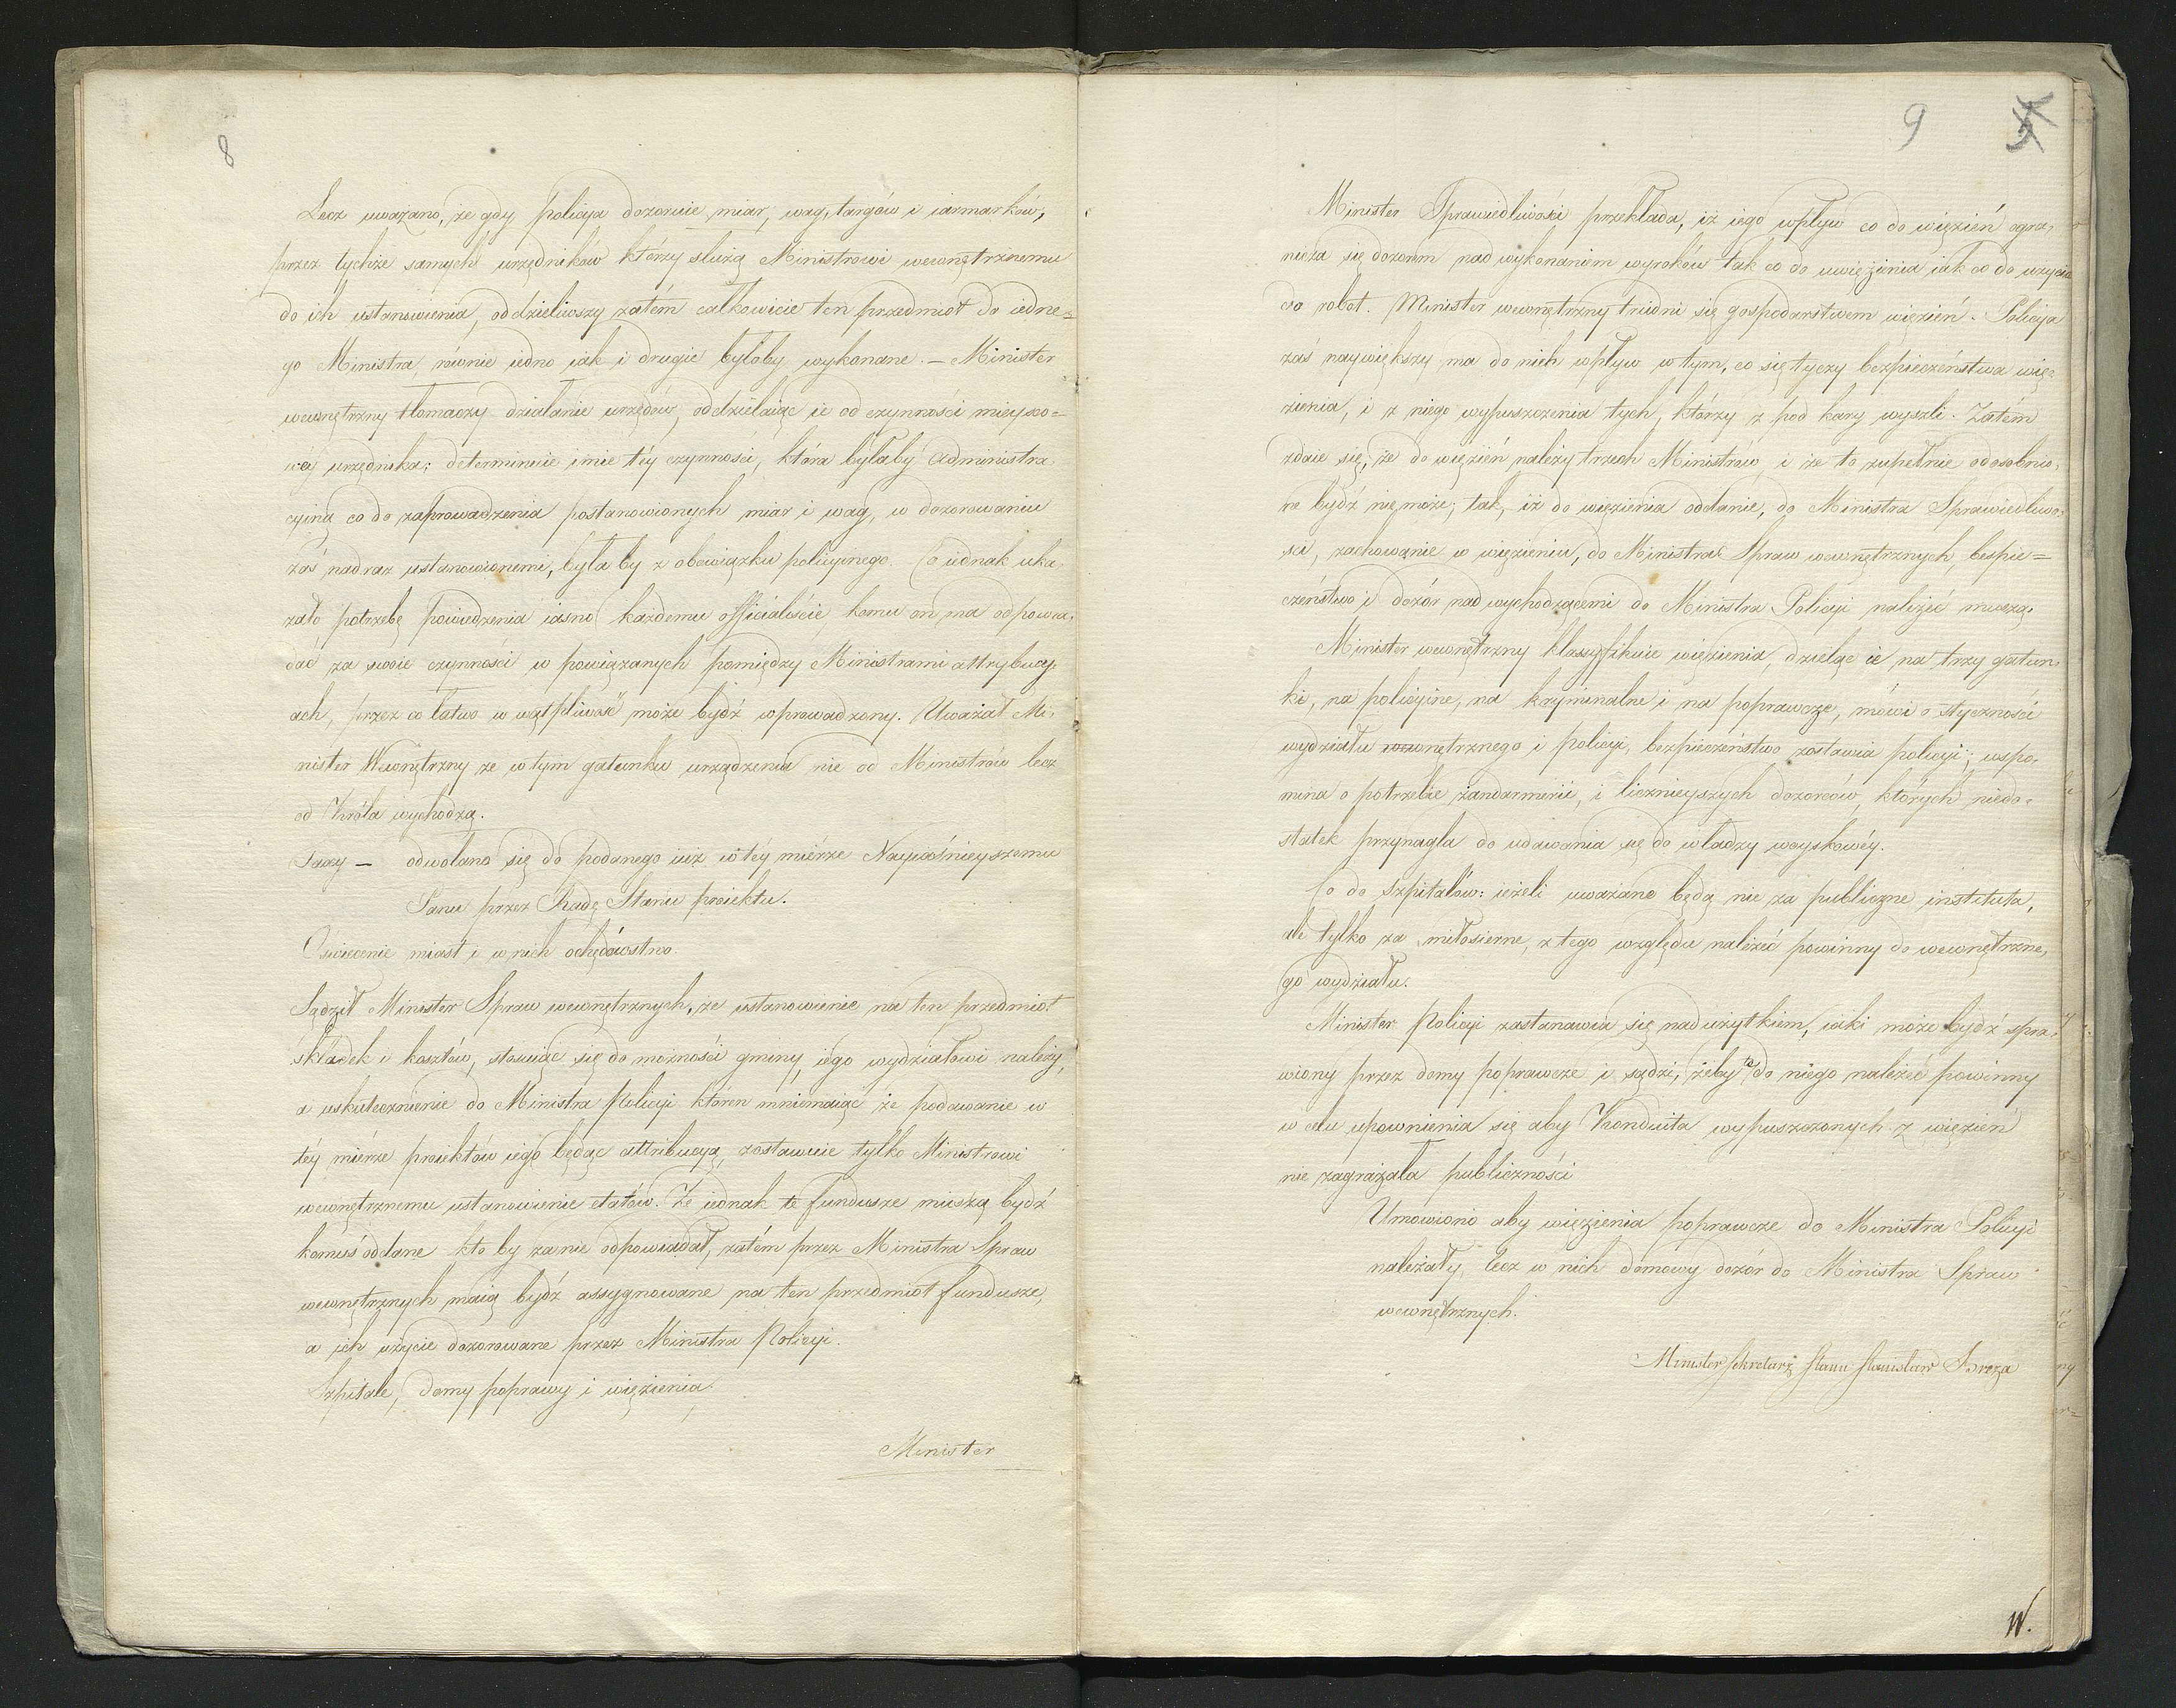 8
Lecz uważano, że gdy policyja dozoruie miar, wag, targów i iarmarków,
przez tychże samych urzędników którzy służą Ministrowi wewnętrznemu
do ich ustanowienia, oddzieliwszy zatém całkowicie ten przedmiot do iedne=
go Ministra, równie iedno iak i drugie byłoby wykonane. — Minister
wewnętrzny tłomaczy działanie urzędów, oddzielaiąc ie od czynności mieysco=
wéj urzędnika; determinuie imie téy czynności, która byłaby administra
cyiną co do zaprowadzenia postanowionych miar i wag, w dozorowaniu
zaś nad raz ustanowionemi, byłaby z obowiązku policyinego. Co iednak uka
zało potrzebę powiedzenia iasno każdemu officialiście, komu on ma odpowia,
dać za swoie czynności w powiązanych pomiędzy Ministrami attrybucy,
ach, przez co łatwo w wątpliwość może bydź wprowadzony. Uważał Mi,
nister Wewnętrzny że w tym gatunku urządzenia nie od Ministrów lecz
od Króla wychodzą.
Taxy — odwołano się do podanego iuż w téy mierze Nayiaśnieyszemu
Panu przez Radę Stanu proiektu.
Oświecenie miast i w nich ochędóstwo.
Sądził Minister Spraw wewnętrznych, że ustanowienie na ten przedmiot
składek i kosztów, stosuiąc się do możności gminy, iego wydziałowi należy,
a uskutecznienie do Ministra Policyi któren mniemaiąc że podawanie w
téy mierze proiektów iego będąc attribucyą, zostawuie tylko Ministrowi
wewnętrznemu ustanowienie etatów. Że iednak te fundusze muszą bydź
komuś oddane kto by za nie odpowiadał, zatém przez Ministra Spraw
wewnętrznych maią bydź assygnowane na ten przedmiot fundusze,
a ich użycie dozorowane przez Ministra Policyi.
Szpitale, domy poprawy i więzienia.
Minister
9
Minister Sprawiedliwości przekłada, iż iego wpływ co do więzień ogra,
nicza się dozorem nad wykonaniem wyroków tak co do uwięzienia iak co do użycia
do robot. Minister wewnętrzny trudni się gospodarstwem więzień. Policyja
zaś naywiększy ma do nich wpływ w tym, co się tyczy bezpieczeństwa wię=
zienia, i z niego wypuszczenia tych, którzy z pod kary wyszli. Zatém
zdaie się, że do więzień należy trzech Ministrów i że to zupełnie odosobnio,
ne bydź nie może, tak, iż do więzienia oddanie, do Ministra Sprawiedliwo,
ści, zachowanie w więzieniu, do Ministra Spraw wewnętrznych, bespie=
czeństwo i dozór nad wychodzącemi do Ministra Policyi należéć muszą.
Minister wewnętrzny klassyfikuie więzienia, dzieląc ie na trzy gatun,
ki, na policyine, na kryminalne i na poprawcze, mówi o styczności
wydziału wewnętrznego i policyi, bezpieczeństwo zostawia policyi; wspo,
mina o potrzebie żandarmerii, i licznieyszych dozorców, których niedo=
statek przynagla do udawania się do władzy woyskowéy.
Co do szpitalów: ieżeli uważane będą nie za publiczne instituta,
ale tylko za miłosierne, z tego względu należéć powinny do wewnętrzne,
go wydziału.
Minister Policyi zastanawia się nad użytkiem, iaki może bydź spra,
wiony przez domy poprawcze i sądzi, żeby do niego należeć powinny
w celu upewnienia się aby Konduita wypuszczonych z więzień
nie zagrażała publiczności
Umówiono aby więzienia poprawcze do Ministra Policyi
należały, lecz w nich domowy dozór do Ministra Spraw
wewnętrznych.
Minister Sekretarz Stanu Stanisław Breza
W.